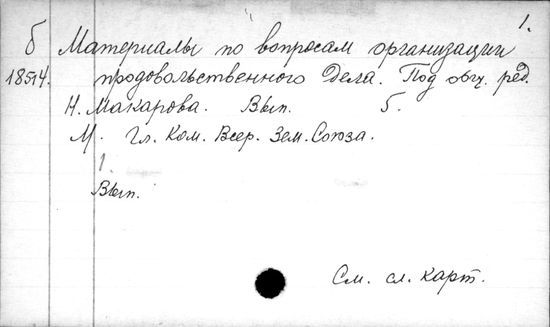 1.
б Материалы по вопросам организации
18514. продовольственного дела. Под общ. ред.
Н. Макарова. Вып. 5.
М. Гл. Ком. Всер. Зем. Союза.
1.
Вып.
См. сл. карт.